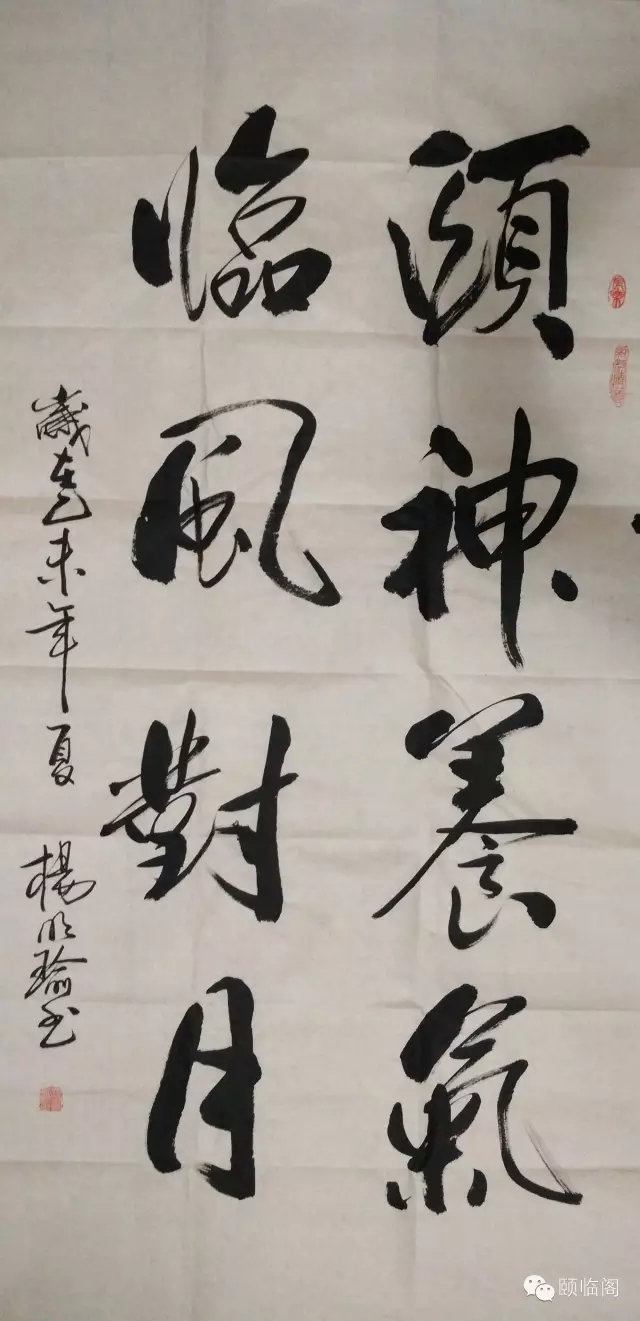 頤神養氣
臨風對月
歲在乙未年夏
楊明瑜书
颐临阁